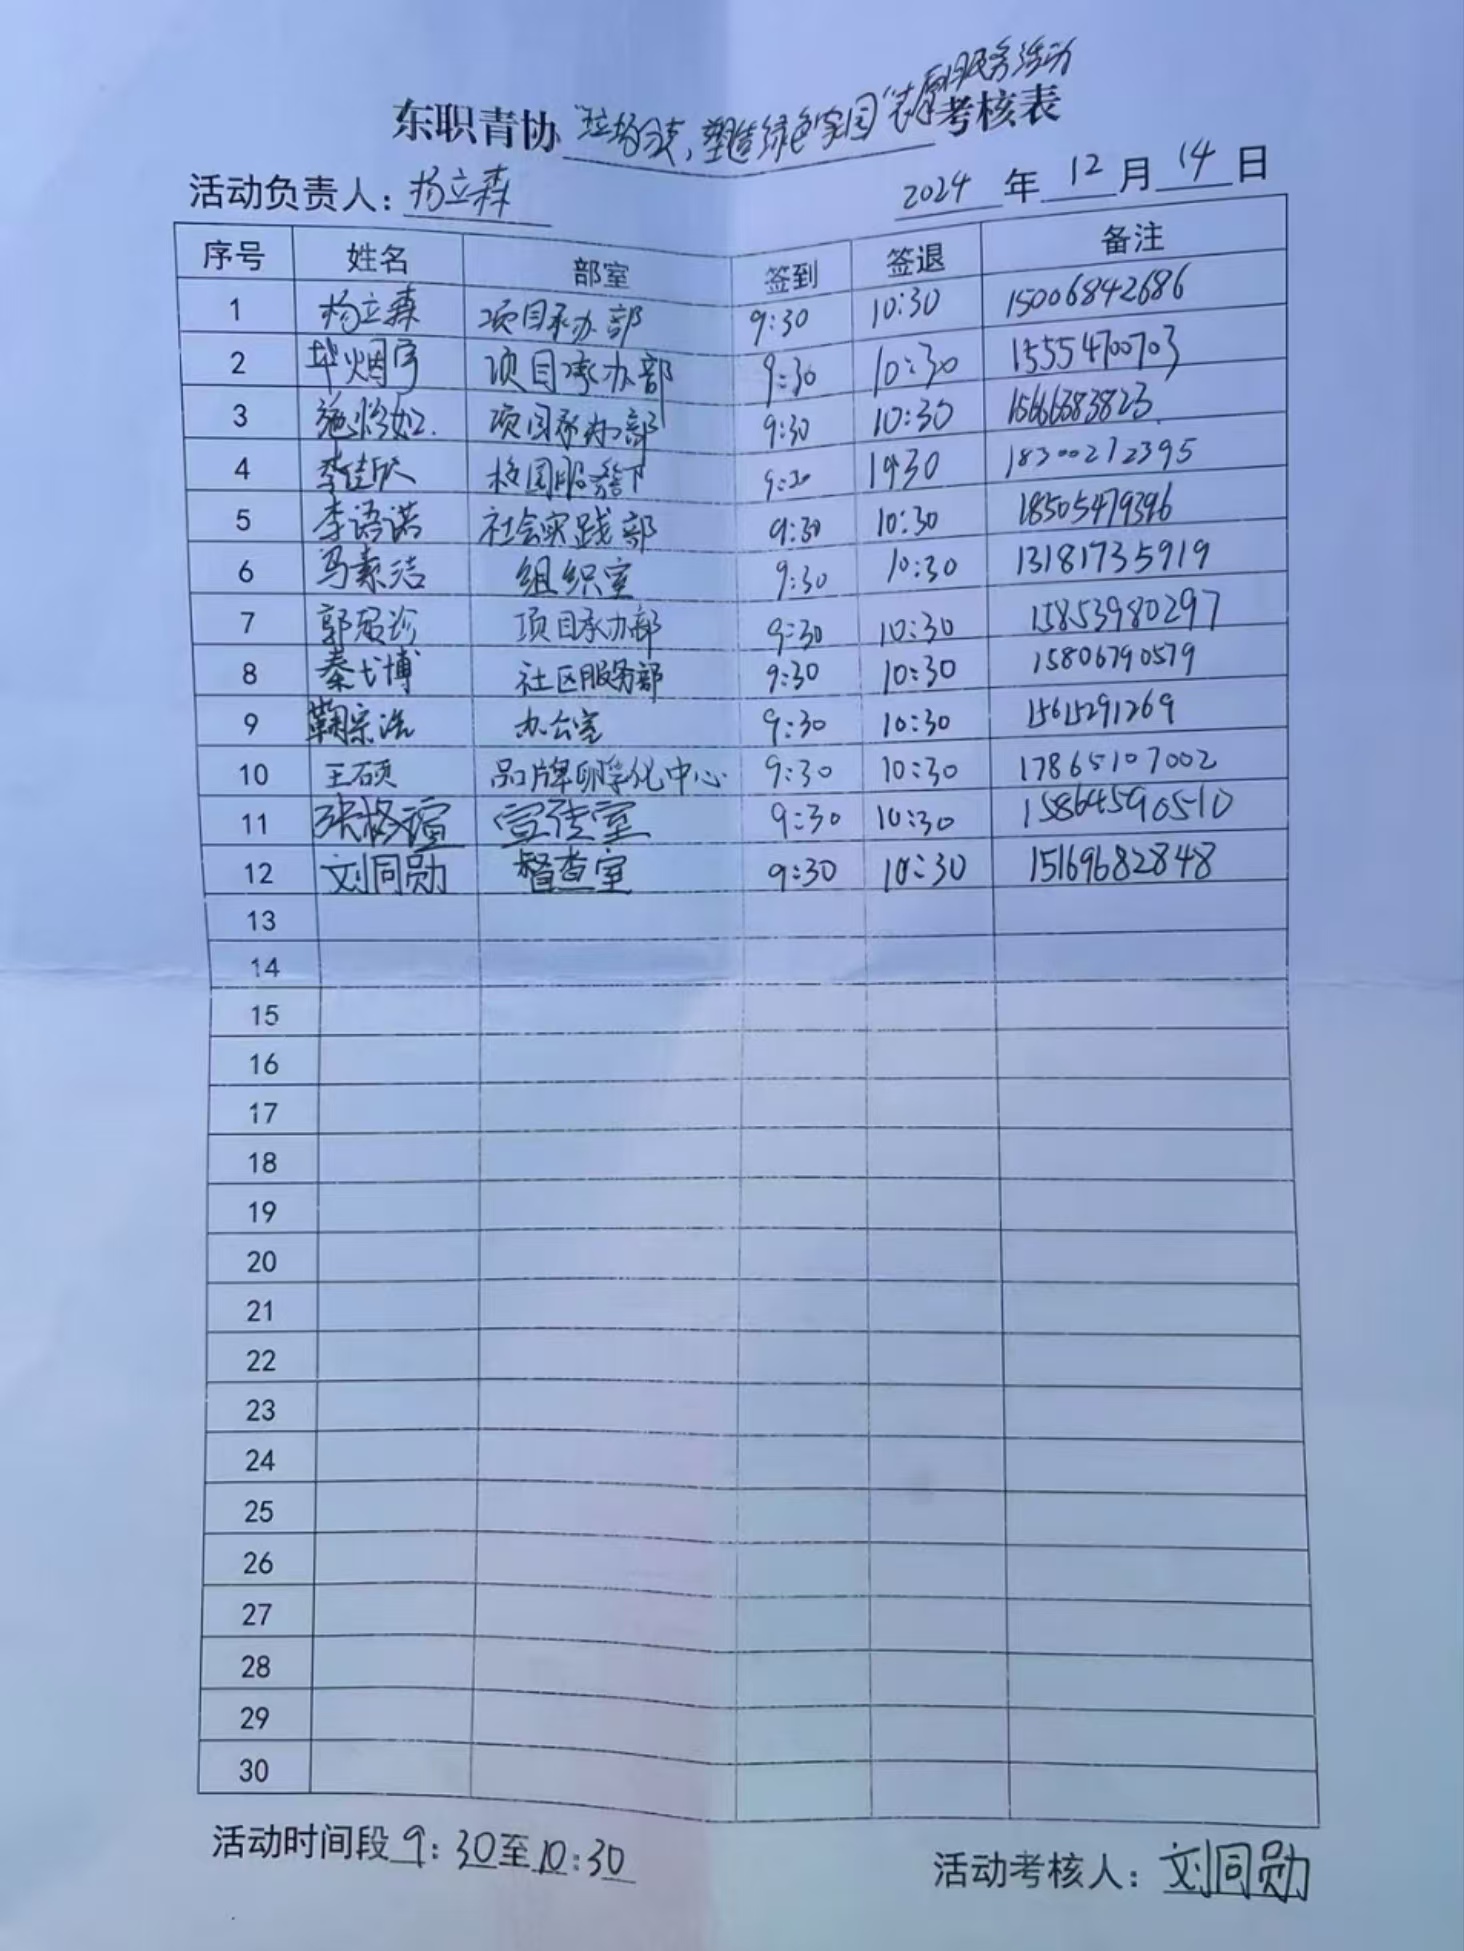 东职青协"垃圾分类,塑造绿色家园"志愿服务活动考核表
活动负责人:杨立森 2024年12月14日
序号 姓名 部室 签到 签退 备注
1 杨立森 项目承办部 9:30 10:30 15006842686
2 毕烟宇 项目承办部 9:30 10:30 15554700703
3 项目承办部 9:30 10:30 15666383823
4 李佳欣 校园服务部 9:30 10:30 18300212395
5 李语诺 社会实践部 9:30 10:30 18505479396
6 马素洁 组织室 9:30 10:30 13181735919
7 项目承办部 9:30 10:30 15853980297
8 秦弋博 社区服务部 9:30 10:30 15806790579
9 鞠宗浩 办公室 9:30 10:30 15615291269
10 王硕 品牌孵化中心 9:30 10:30 17865107002
11 张格瑄 宣传室 9:30 10:30 15864590510
12 刘同勋 督查室 9:30 10:30 15169682848
13
14
15
16
17
18
19
20
21
22
23
24
25
26
27
28
29
30
活动时间段 9:30至10:30 活动考核人:刘同勋